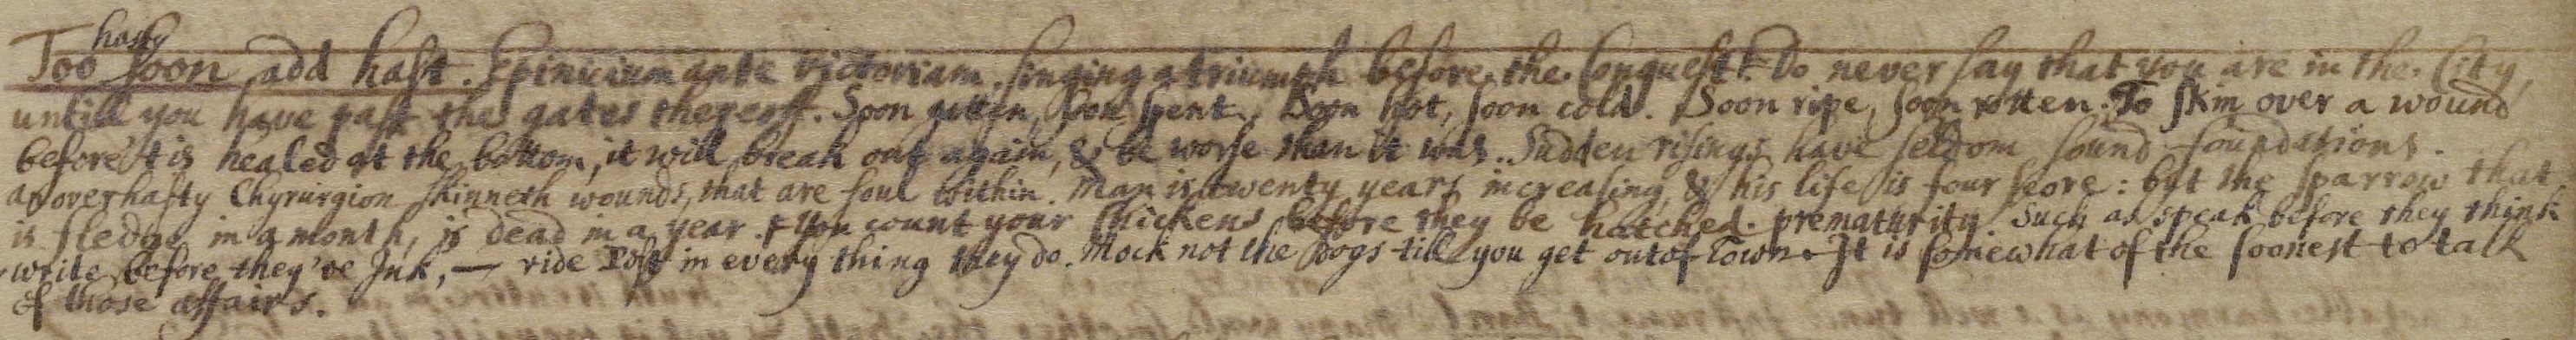 hasty
Too soon add hast. Epinicium ante victoriam. singing a triumph before the Conquest. Do never say that you are in the City,
untill you have past the gates thereoff. Soon gotten, soon spent. Soon hot, soon cold. Soon ripe, soon rotten. To skin over a wound
before't is healed at the bottom, it will break out again, & be worse than it was. Sudden risings have seldom sound foundations.
an overhasty Chyrurgion skinneth wounds, that are foul within. Man is twenty years increasing, & his life is four score: but the sparrow that
is fledge in a month, is dead in a year. You count your Chickens before they be hatched. prematurity. Such as speak before they think
write before they've Ink, — ride Post in every thing they do. Mock not the Dogs till you get out of Town. It is somewhat of the soonest to talk
of those affairs.